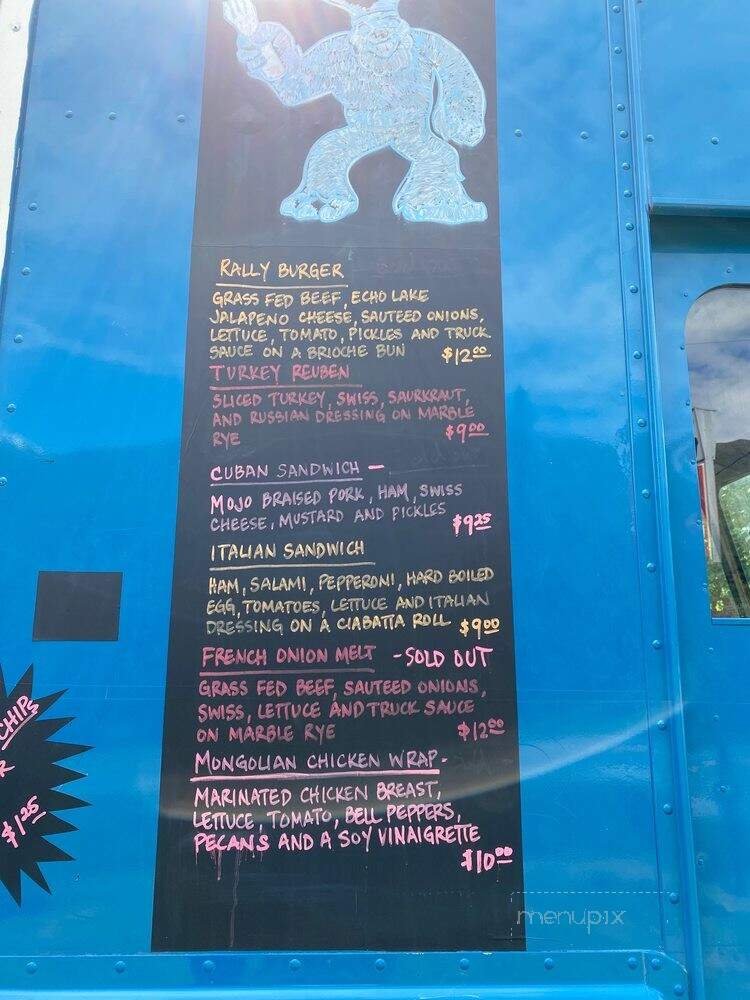 RALLY BURGER
GRASS FED BEEF, ECHO LAKE
JALAPENO CHEESE, SAUTEED ONIONS,
LETTUCE, TOMATO, PICKLES AND TRUCK
SAUCE ON A BRIOCHE BUN $12.00
TURKEY REUBEN
SLICED TURKEY, SWISS, SAURKRAUT,
AND RUSSIAN DRESSING ON MARBLE
RYE $9.00
CUBAN SANDWICH -
MOJO BRAISED PORK, HAM, SWISS
CHEESE, MUSTARD AND PICKLES $9.25
ITALIAN SANDWICH
HAM, SALAMI, PEPPERONI, HARD BOILED
EGG, TOMATOES, LETTUCE AND ITALIAN
DRESSING ON A CIABATTA ROLL $9.00
FRENCH ONION MELT - SOLD OUT
GRASS FED BEEF, SAUTEED ONIONS,
SWISS, LETTUCE AND TRUCK SAUCE
ON MARBLE RYE $12.00
MONGOLIAN CHICKEN WRAP -
MARINATED CHICKEN BREAST,
LETTUCE, TOMATO, BELL PEPPERS,
PECANS AND A SOY VINAIGRETTE
$10.00
CHIPS
$1.25
menupix